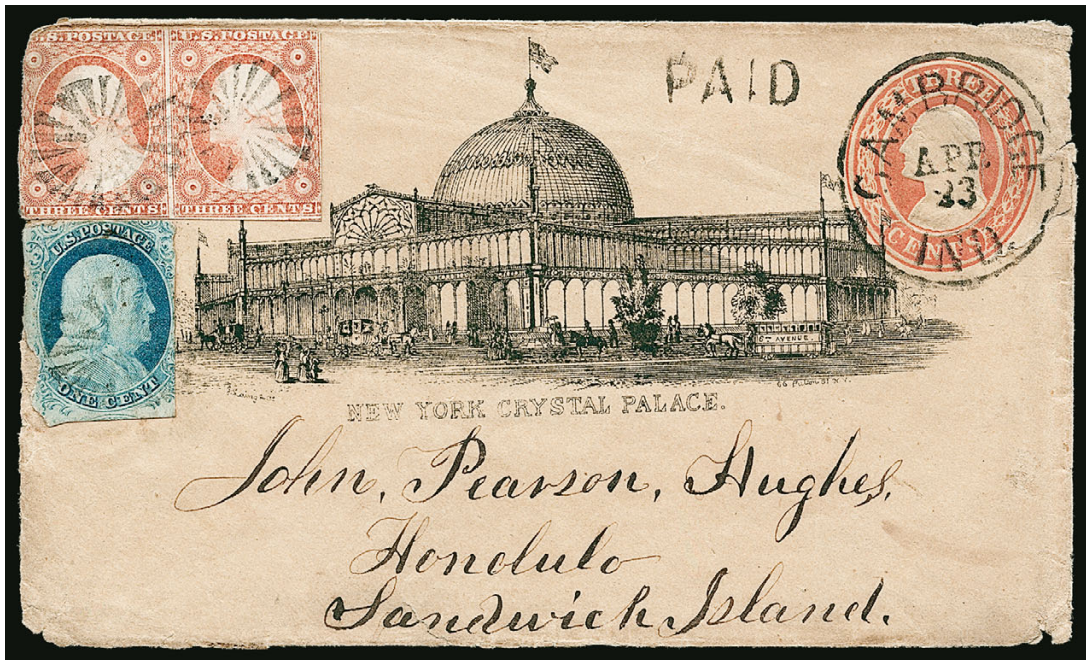 U.S. POSTAGE U.S. POSTAGE
THREE CENTS THREE CENTS
U.S. POSTAGE
ONE CENT
PAID
THREE
CENTS
CAMBRIDGE
APR
23
IND.
6TH AVENUE
NEW YORK CRYSTAL PALACE.
John, Pearson, Hughes,
Honolulo
Sandwich Island.